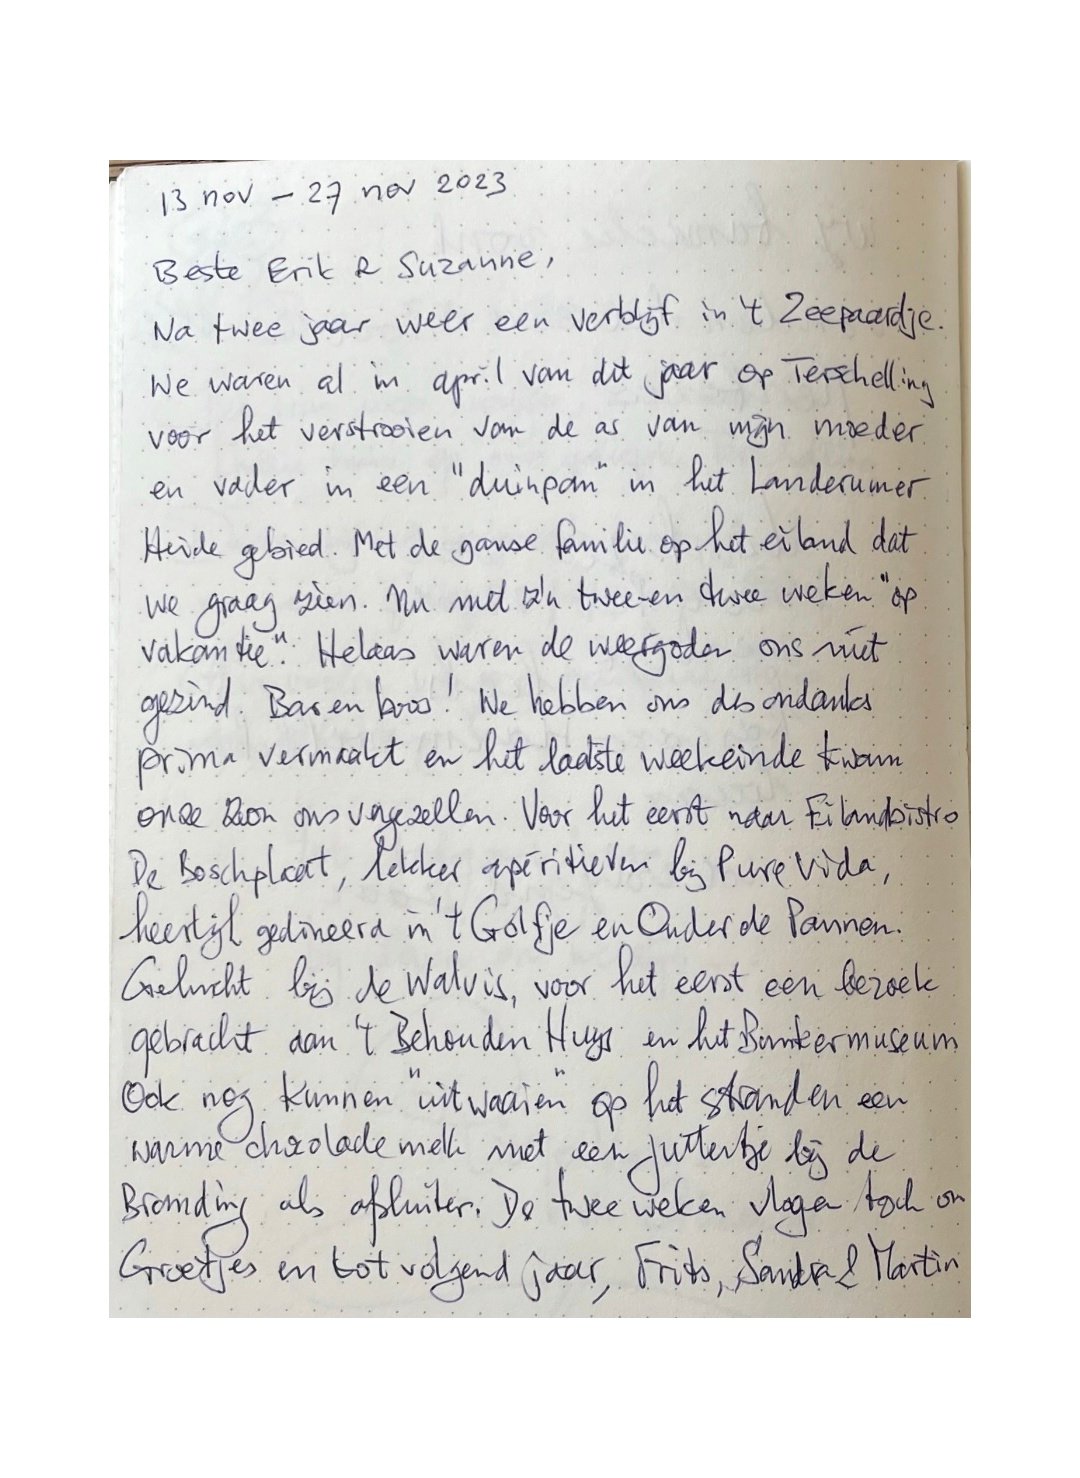 13 nov – 27 nov 2023
Beste Erik & Suzanne,
Na twee jaar weer een verblijf in 't Zeepaardje.
We waren al in april van dit jaar op Terschelling
voor het verstrooien van de as van mijn moeder
en vader in een "duinpan" in het Landerumer
Heide gebied. Met de ganse familie op het eiland dat
we graag zien. Nu met z'n twee-en twee weken "op
vakantie". Helaas waren de weergoden ons niet
gezind. Bar en boos! We hebben ons desondanks
prima vermaakt en het laatste weekeinde kwam
onze zoon ons vergezellen. Voor het eerst naar Eilandbistro
De Boschplaat, lekker apéritieven bij Pura Vida,
heerlijk gedineerd in 't Golfje en Onder de Pannen.
Geluncht bij de Walvis, voor het eerst een bezoek
gebracht aan 't Behouden Huys en het Bunkermuseum
Ook nog kunnen "uitwaaien" op het strand en een
warme chocolademelk met een juttertje bij de
Branding als afsluiter. De twee weken vlogen toch om
Groetjes en tot volgend jaar, Frits, Sandra & Martin